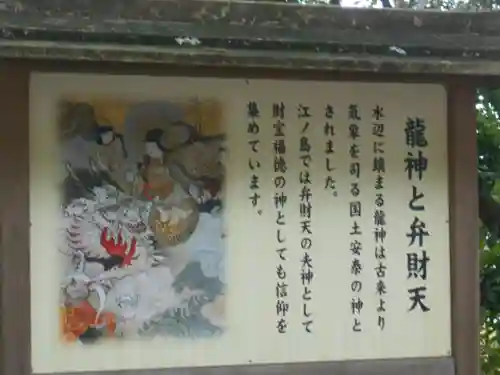 龍神と弁財天
水辺に鎮まる龍神は古来より
気象を司る国土安泰の神と
されました。
江ノ島では弁財天の夫神として
財宝福徳の神としても信仰を
集めています。